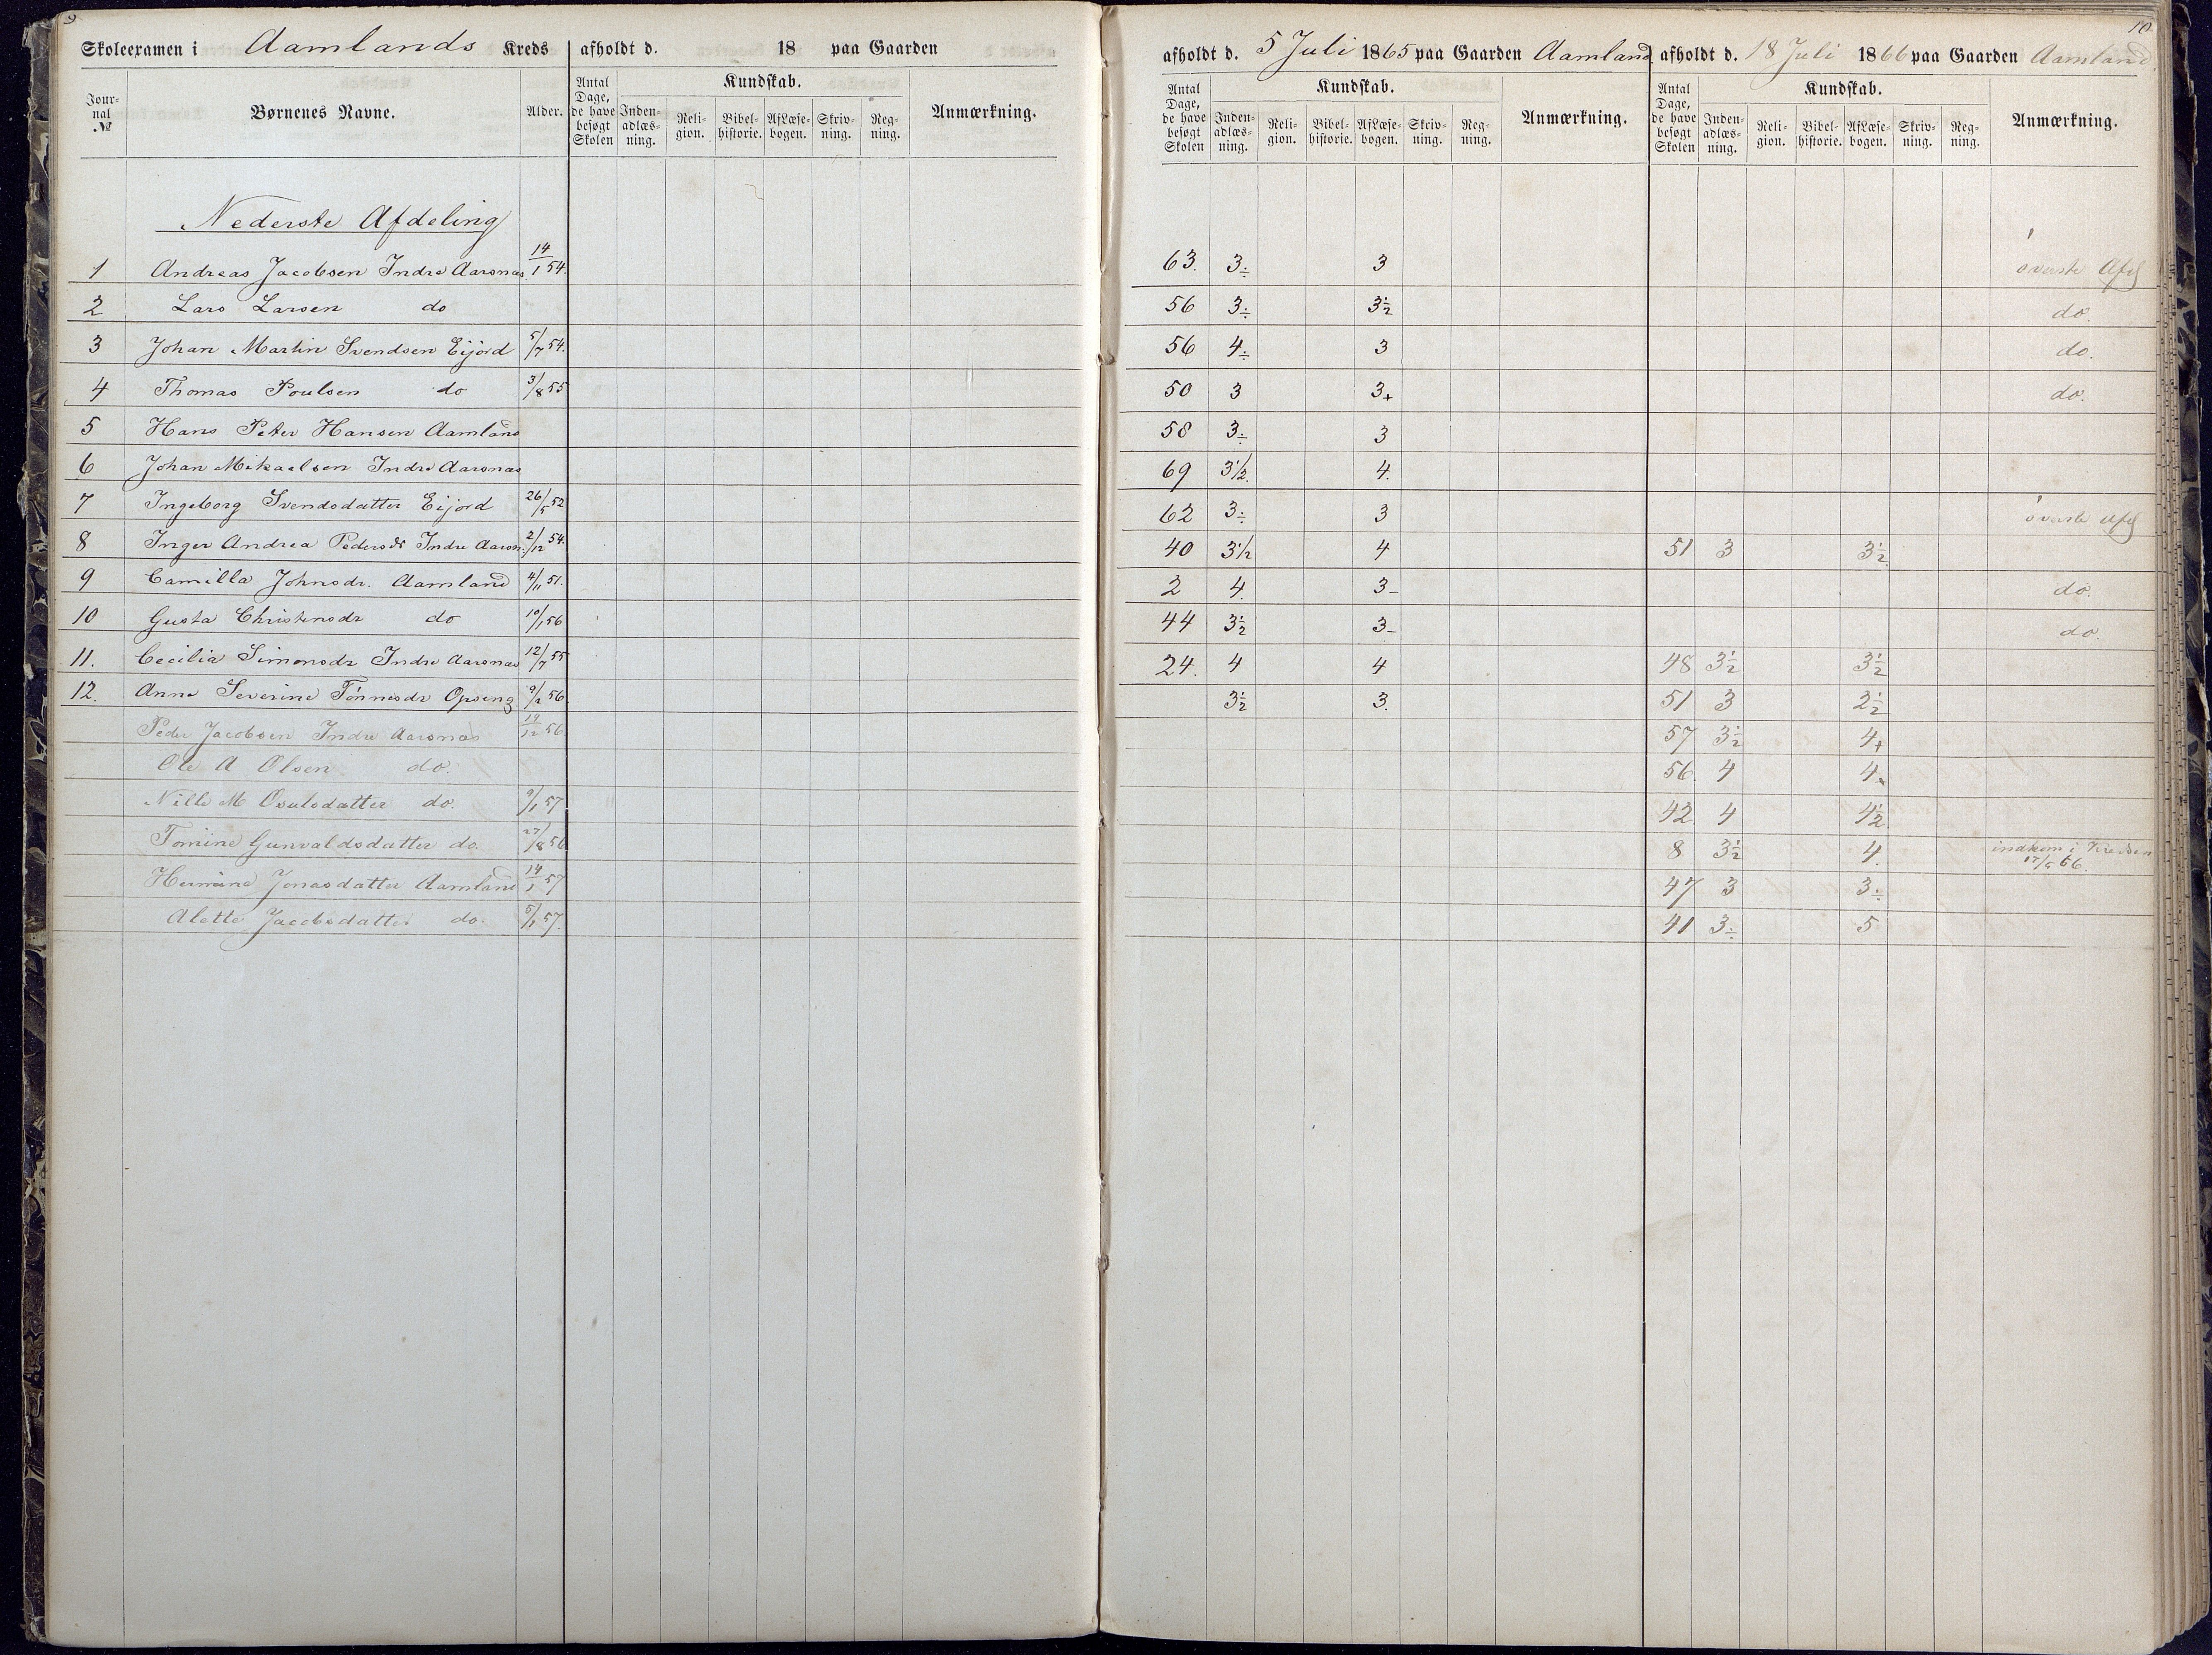 9
Skoleexamen i Aamlands Kreds afholdt d. 18 paa Gaarden
Journal № Børnenes Navne. Alder. Antal Dage, de have besøgt Skolen Kundskab. Indenadlæsning. Religion. Bibelhistorie. Af Læsebogen. Skrivning. Regning. Anmærkning.
Nederste Afdeling
1 Andreas Jacobsen Indre Aarsnæs 14/1 54.
2 Lars Larsen do
3 Johan Martin Svendsen Eijord 5/7 54.
4 Thomas Poulsen do 3/8 55
5 Hans Peter Hansen Aamland
6 Johan Mikaelsen Indre Aarsnæs
7 Ingeborg Svendsdatter Eijord 26/5 52
8 Inger Andrea Pedersdr Indre Aarsn. 2/12 54.
9 Camilla Johnsdr. Aamland 4/11 51.
10 Gusta Christensdr do 10/1 56
11. Cecilia Simonsdr Indre Aarsnæs 12/7 55
12. Anne Severine Tönnesdr Opseng 9/2 56.
Peder Jacobsen Indre Aarsnæs 19/12 56
Ole A Olsen do.
Nille M Osulsdatter do. 9/1 57
Tomine Gunvaldsdatter do. 27/8 56
Hermine Jonasdatter Aamland 14/1 57
Alette Jacobsdatter do. 5/1 57.
10
afholdt d. 5 Juli 1865 paa Gaarden Aamland. afholdt d. 18 Juli 1866 paa Gaarden Aamland.
Antal Dage, de have besøgt Skolen Kundskab. Indenadlæsning. Religion. Bibelhistorie. Af Læsebogen. Skrivning. Regning. Anmærkning. Antal Dage, de have besøgt Skolen Kundskab. Indenadlæsning. Religion. Bibelhistorie. Af Læsebogen. Skrivning. Regning. Anmærkning.
63. 3÷ 3 överste Afd
56 3÷ 3½ do.
56 4÷ 3 do.
50 3 3+ do.
58 3÷ 3
69 3½. 4.
62 3÷ 3 överste Afd
40 3½ 4 51 3 3½
2 4. 3- do.
44 3½ 3- do.
24. 4 4 48 3½ 3½
3½ 3. 51 3 2½
57 3½ 4+
56. 4 4
42 4 4½
8 3½ 4. indkom i Kredsen 17/5 66.
47 3 3÷
41 3÷ 5